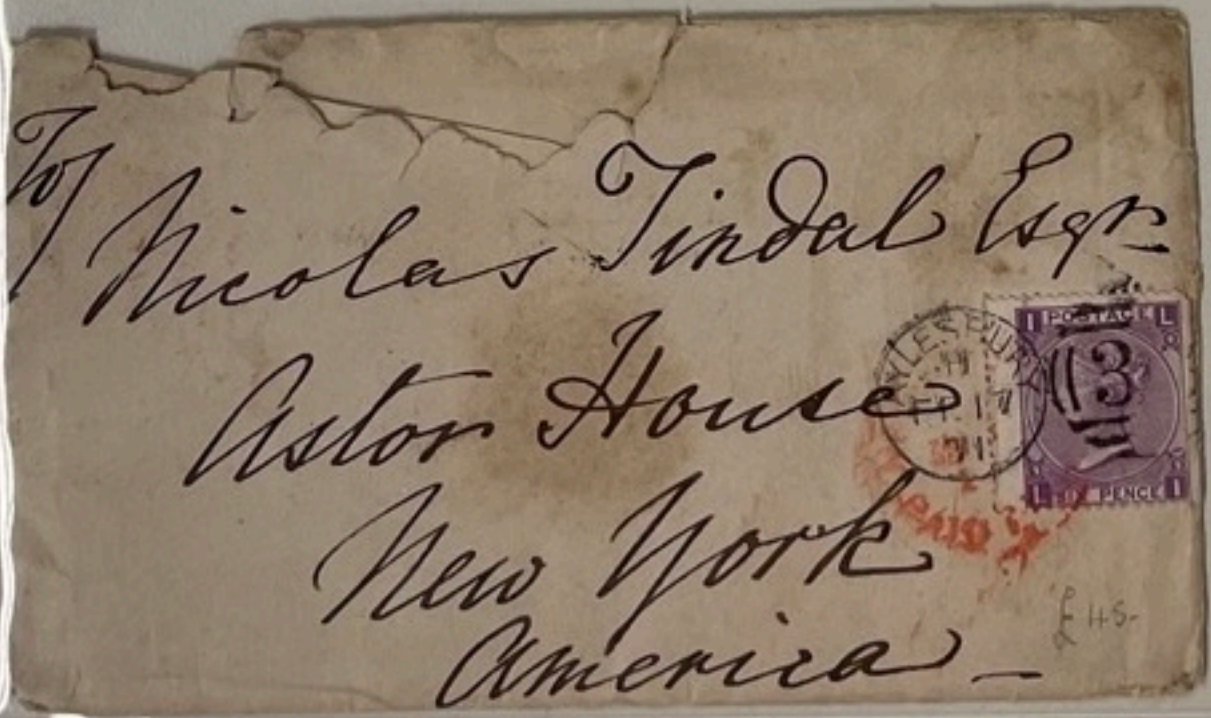 To/
Nicolas Tindal Esqr
Astor House
New York
America
AYLESBURY
71
I POSTAGE L
3
L SIX PENCE I
PAID
£ 45-